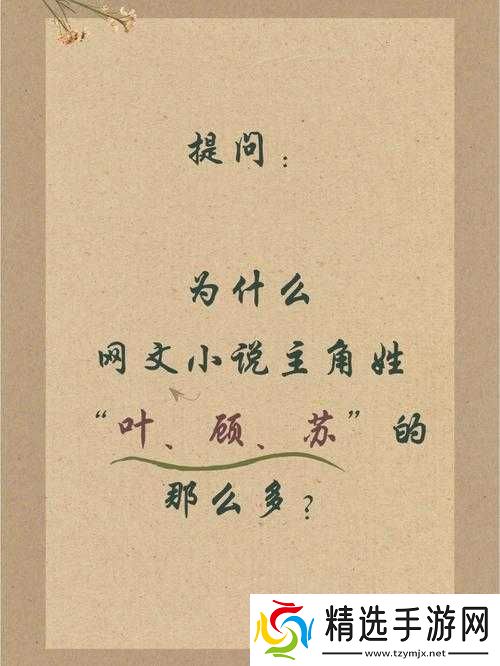 提问：
为什么
网文小说主角姓
“叶、顾、苏”的
那么多？
精选手游网
www.tzymjx.net